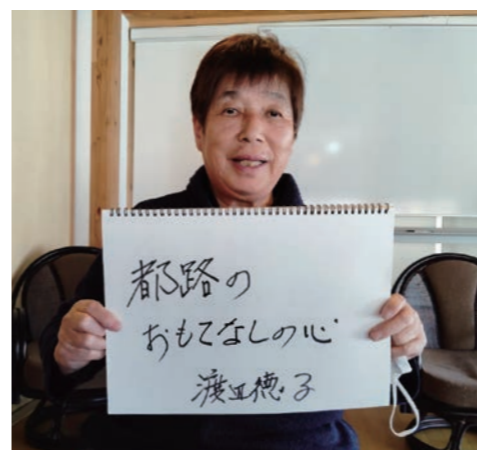 都路の
おもてなしの心
渡辺徳子